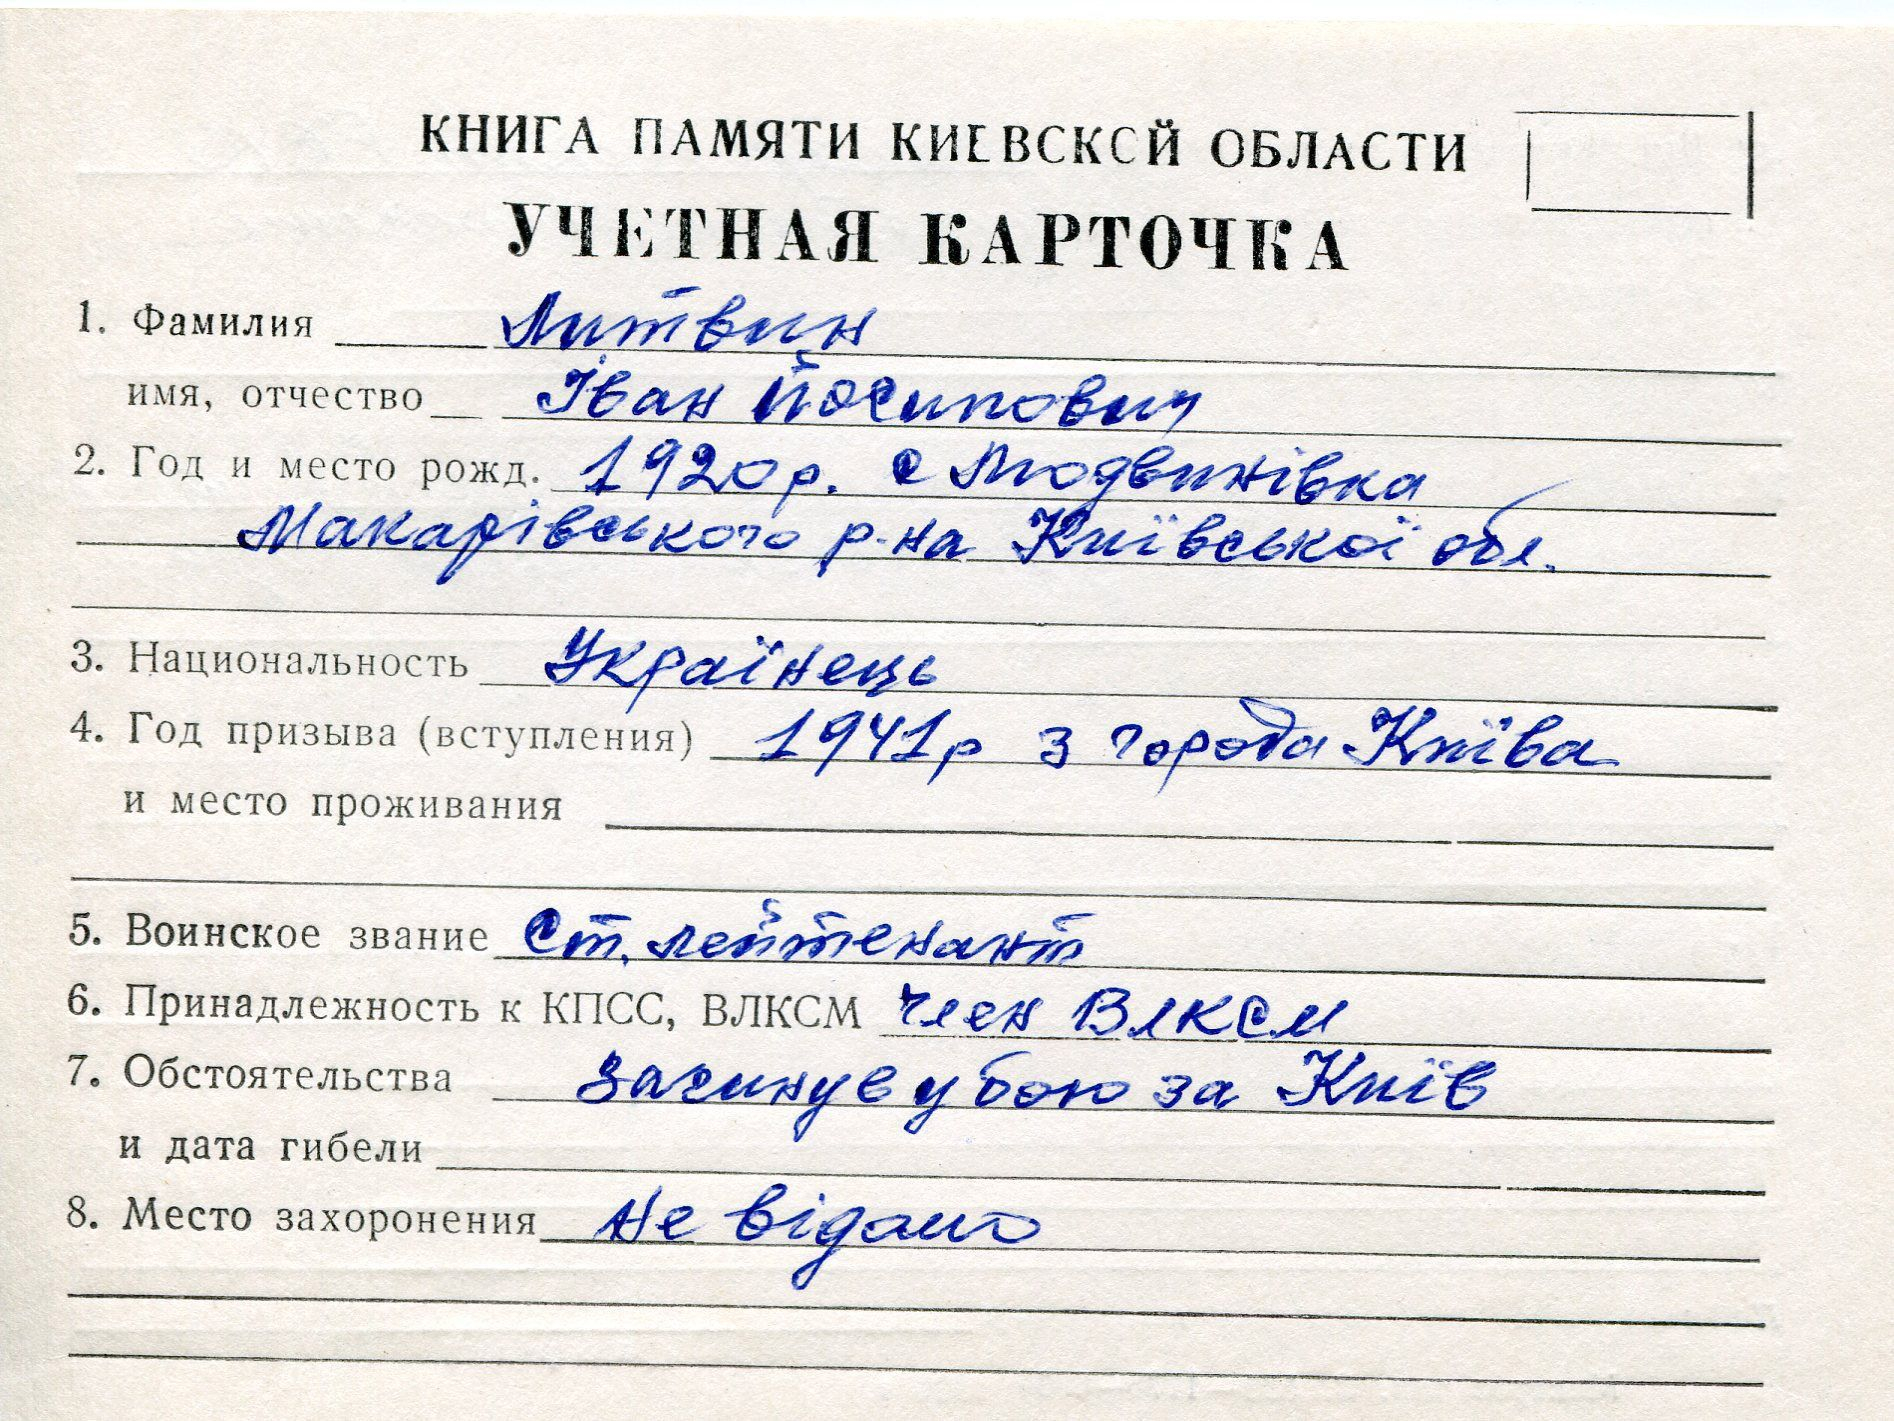 КНИГА ПАМЯТИ КИЕВСКОЙ ОБЛАСТИ
УЧЕТНАЯ КАРТОЧКА
1. Фамилия Литвин
имя, отчество Іван Йосипович
2. Год и место рожд. 1920 р. с Людвинівка
Макарівського р-на Київської обл.
3. Национальность Українець
4. Год призыва (вступления) 1941 р з города Київа
и место проживания
5. Воинское звание Ст. лейтенант
6. Принадлежность к КПСС, ВЛКСМ член ВЛКСМ
7. Обстоятельства Загинув у бою за Київ
и дата гибели
8. Место захоронения не відомо